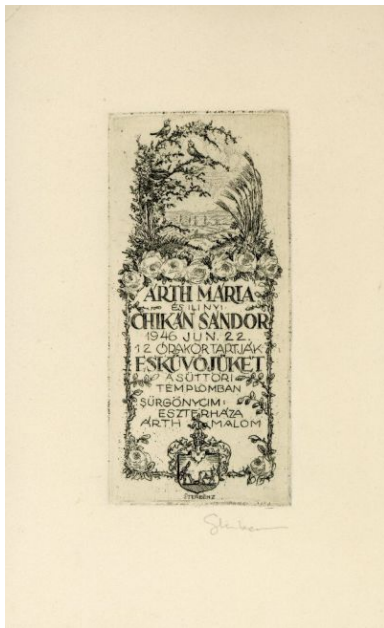 ÁRTH MÁRIA
ÉS ILINYI
CHIKÁN SÁNDOR
1946 JUN. 22.
12 ÓRAKOR TARTJÁK
ESKÜVŐJÜKET
A SÜTTÖRI
TEMPLOMBAN
SÜRGÖNYCIM:
ESZTERHÁZA
ÁRTH MALOM
STERBENZ